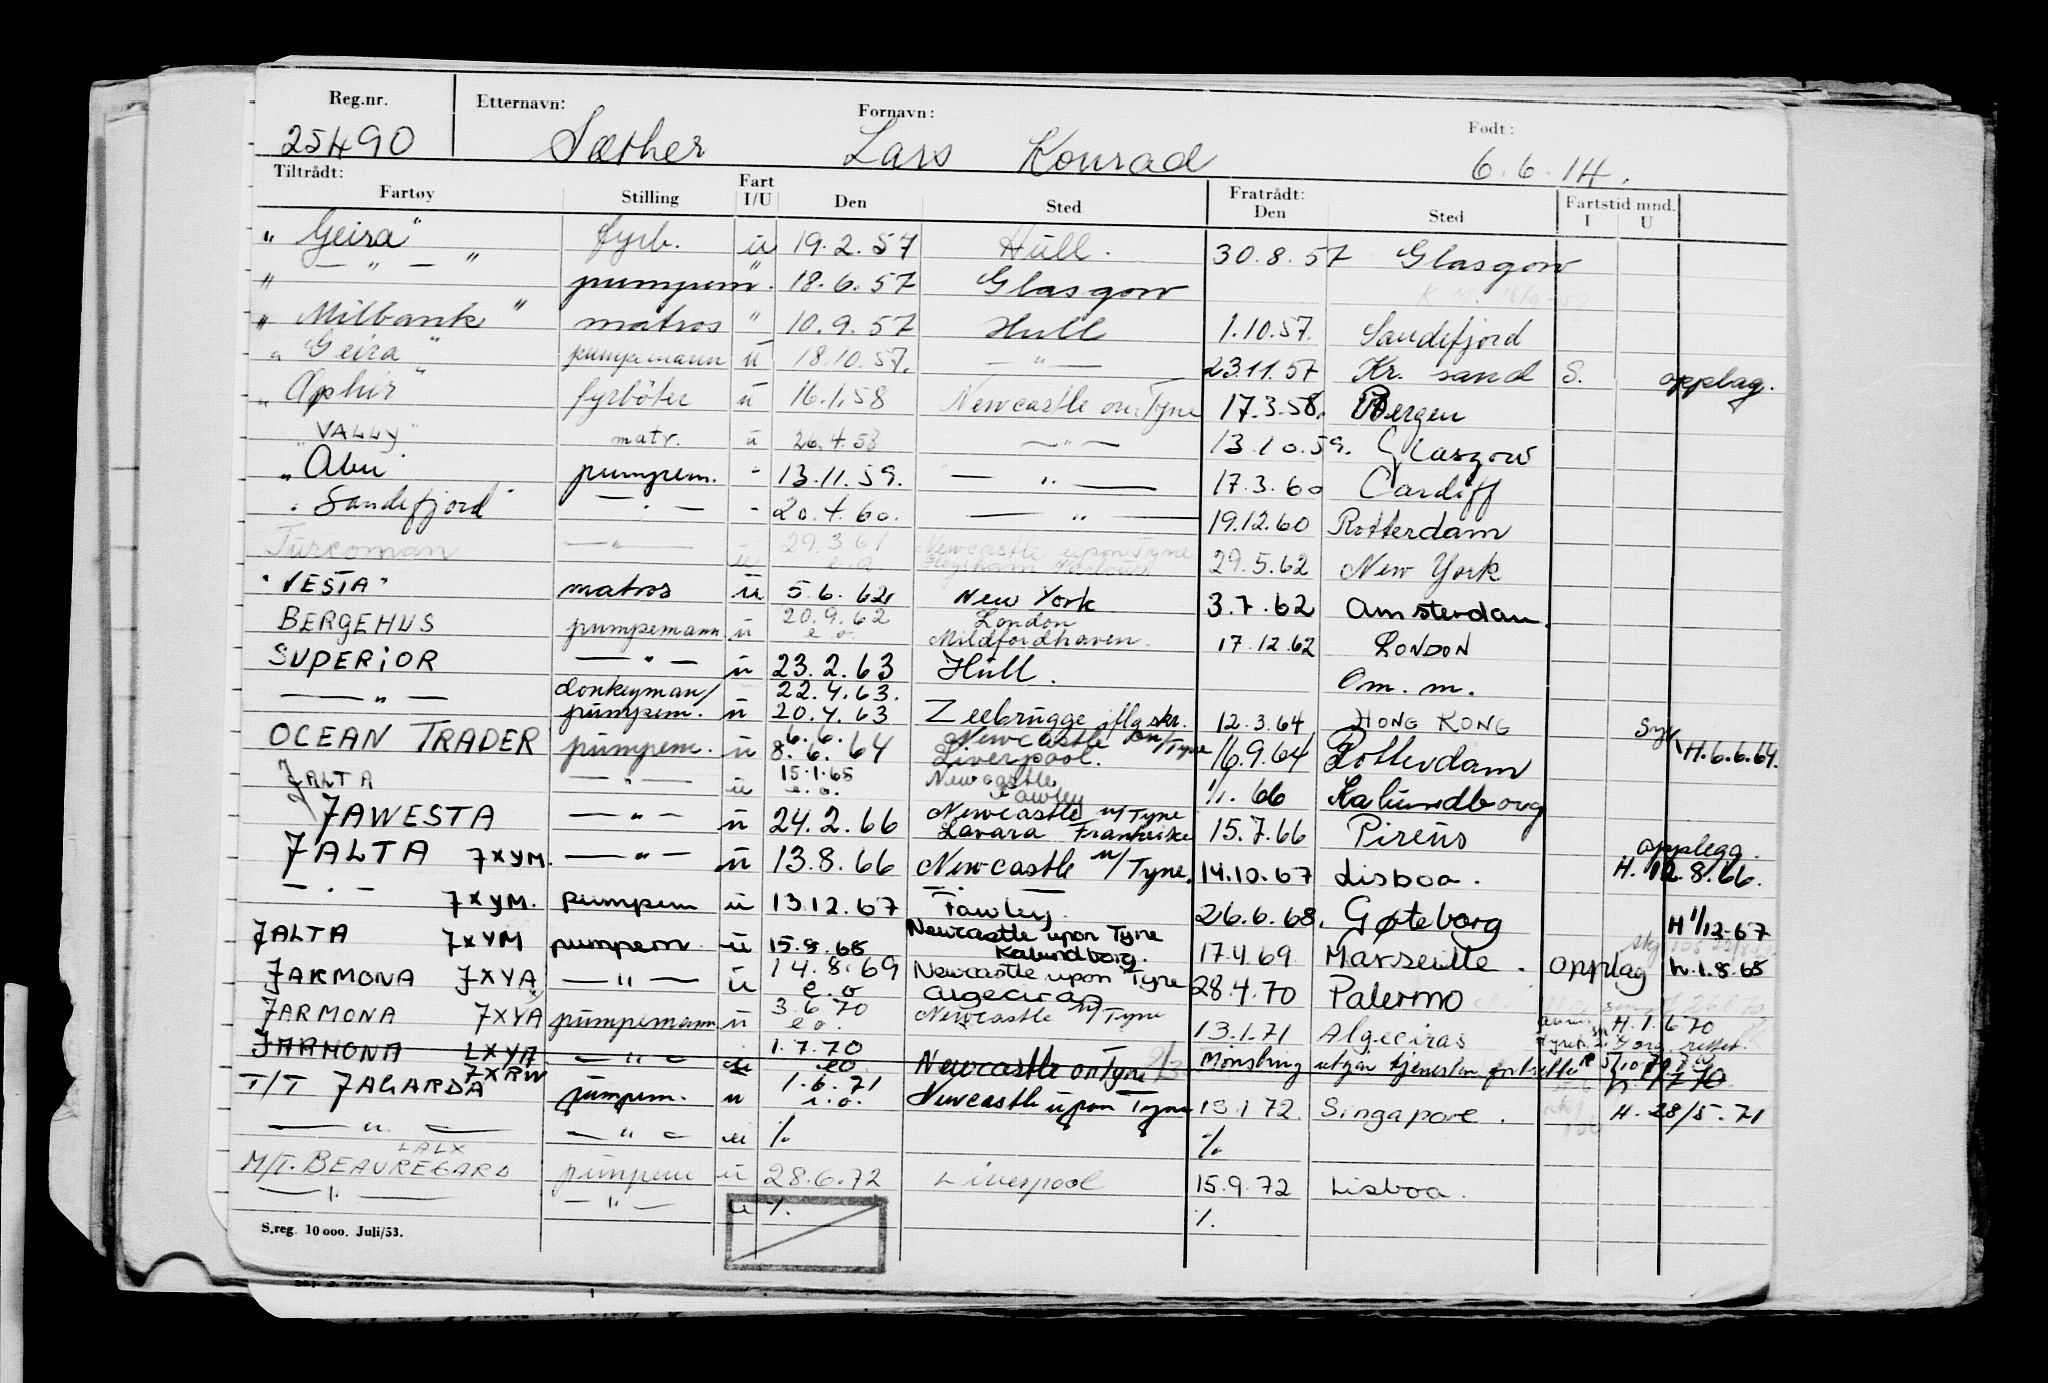 Reg.nr. Etternavn: Fornavn: Født:
25490 Sæther Lars Konrad 6.6.14.
Tiltrådt: Fratrådt:
Fartøy Stilling Fart I/U Den Sted Den Sted Fartstid mnd. I U
"Geira" fyrb. u 19.2.57 Hull. 30.8.57 Glasgow
" — " — " pumpem " 18.6.57 Glasgow
" Milbank " matros " 10.9.57 Hull 1.10.57. Sandefjord
" Geira " pumpemann u 18.10.57. — " — 23.11.57 Kr. sand S. opplag.
" Ophir " fyrböter u 16.1.58 Newcastle on Tyne 17.3.58. Bergen
" VALLY " matr. u 26.4.58 — " — 13.10.59. Glasgow
" Abu pumpem. - 13.11.59. — " — 17.3.60 Cardiff
" Sandefjord — " — - 20.4.60. — " — 19.12.60 Rotterdam
Turcoman — " — u 29.3.61 e.o Newcastle upon Tyne Heysham 29.5.62 New York
"VESTA" matros u 5.6.62 New York 3.7.62 Amsterdam.
BERGEHUS pumpemann u 20.9.62 e.o. London Mildfordhaven. 17.12.62 LONDON
SUPERIOR — " — u 23.2.63 Hull. Om. m.
— " — donkeyman/ pumpem. u 22.4.63. 20.4.63 Zeebrugge iflg skr. 12.3.64 HONG KONG Syk
OCEAN TRADER pumpem. u 6.6. 8.6.64 Newcastle on/Tyne Liverpool. 16.9.64 Rotterdam H.6.6.64.
JALTA — " — u 15.1.65 e.o. Newcastle Fawley 1/1. 66 Kalundborg
JAWESTA — " — u 24.2.66 Newcastle u/Tyne Lavara Frankrike 15.7.66 Pireus
JALTA 7XYM. — " — u 13.8.66 Newcastle u/Tyne. 14.10.67 Lisboa. opplegg. H. 12.8.66.
— " — 7XYM. pumpem u 13.12.67 Fawley. 26.6.68. Gøteborg H 1/12-67
JALTA 7XYM pumpem u 15.8.68 Newcastle upon Tyne Kalundborg. 17.4.69 Marseille. opplag h.1.8.68
JARMONA 7XYA — " — u 14.8.69 e.o Newcastle upon Tyne Algeciras 28.4.70 Palermo
JARMONA 7XYA pumpemann u 3.6.70 e.o. Newcastle u/Tyne 13.1.71 Algeciras H.1.6.70
JARMONA LXYA — " — u 1.7.70 eo Newcastle on Tyne Mønstring utgår tjenesten fortsetter
T/T JAGARDA 7XRW pumpem. u 1.6.71 e.o. Newcastle upon Tyne 13.1.72 Singapore. H. 28/5.71
— " — — " — u % %
M/T. BEAUREGARD LALX pumpem u 28.6.72 Liverpool 15.9.72 Lisboa.
— " — — " — u %. %.
S.reg. 10 000. Juli/53.